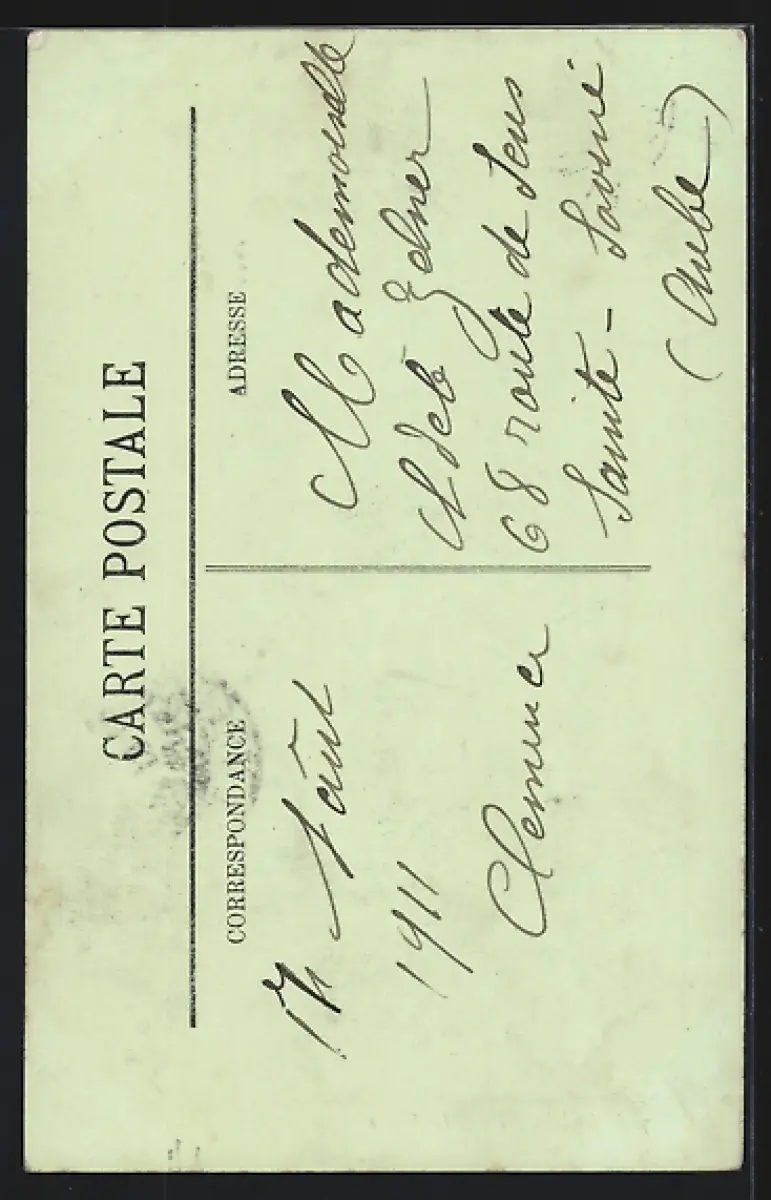 CARTE POSTALE
CORRESPONDANCE
Août
1911
Clemence
ADRESSE
Mademoiselle
68 route de Sens
Sainte - Savine
(Aube)